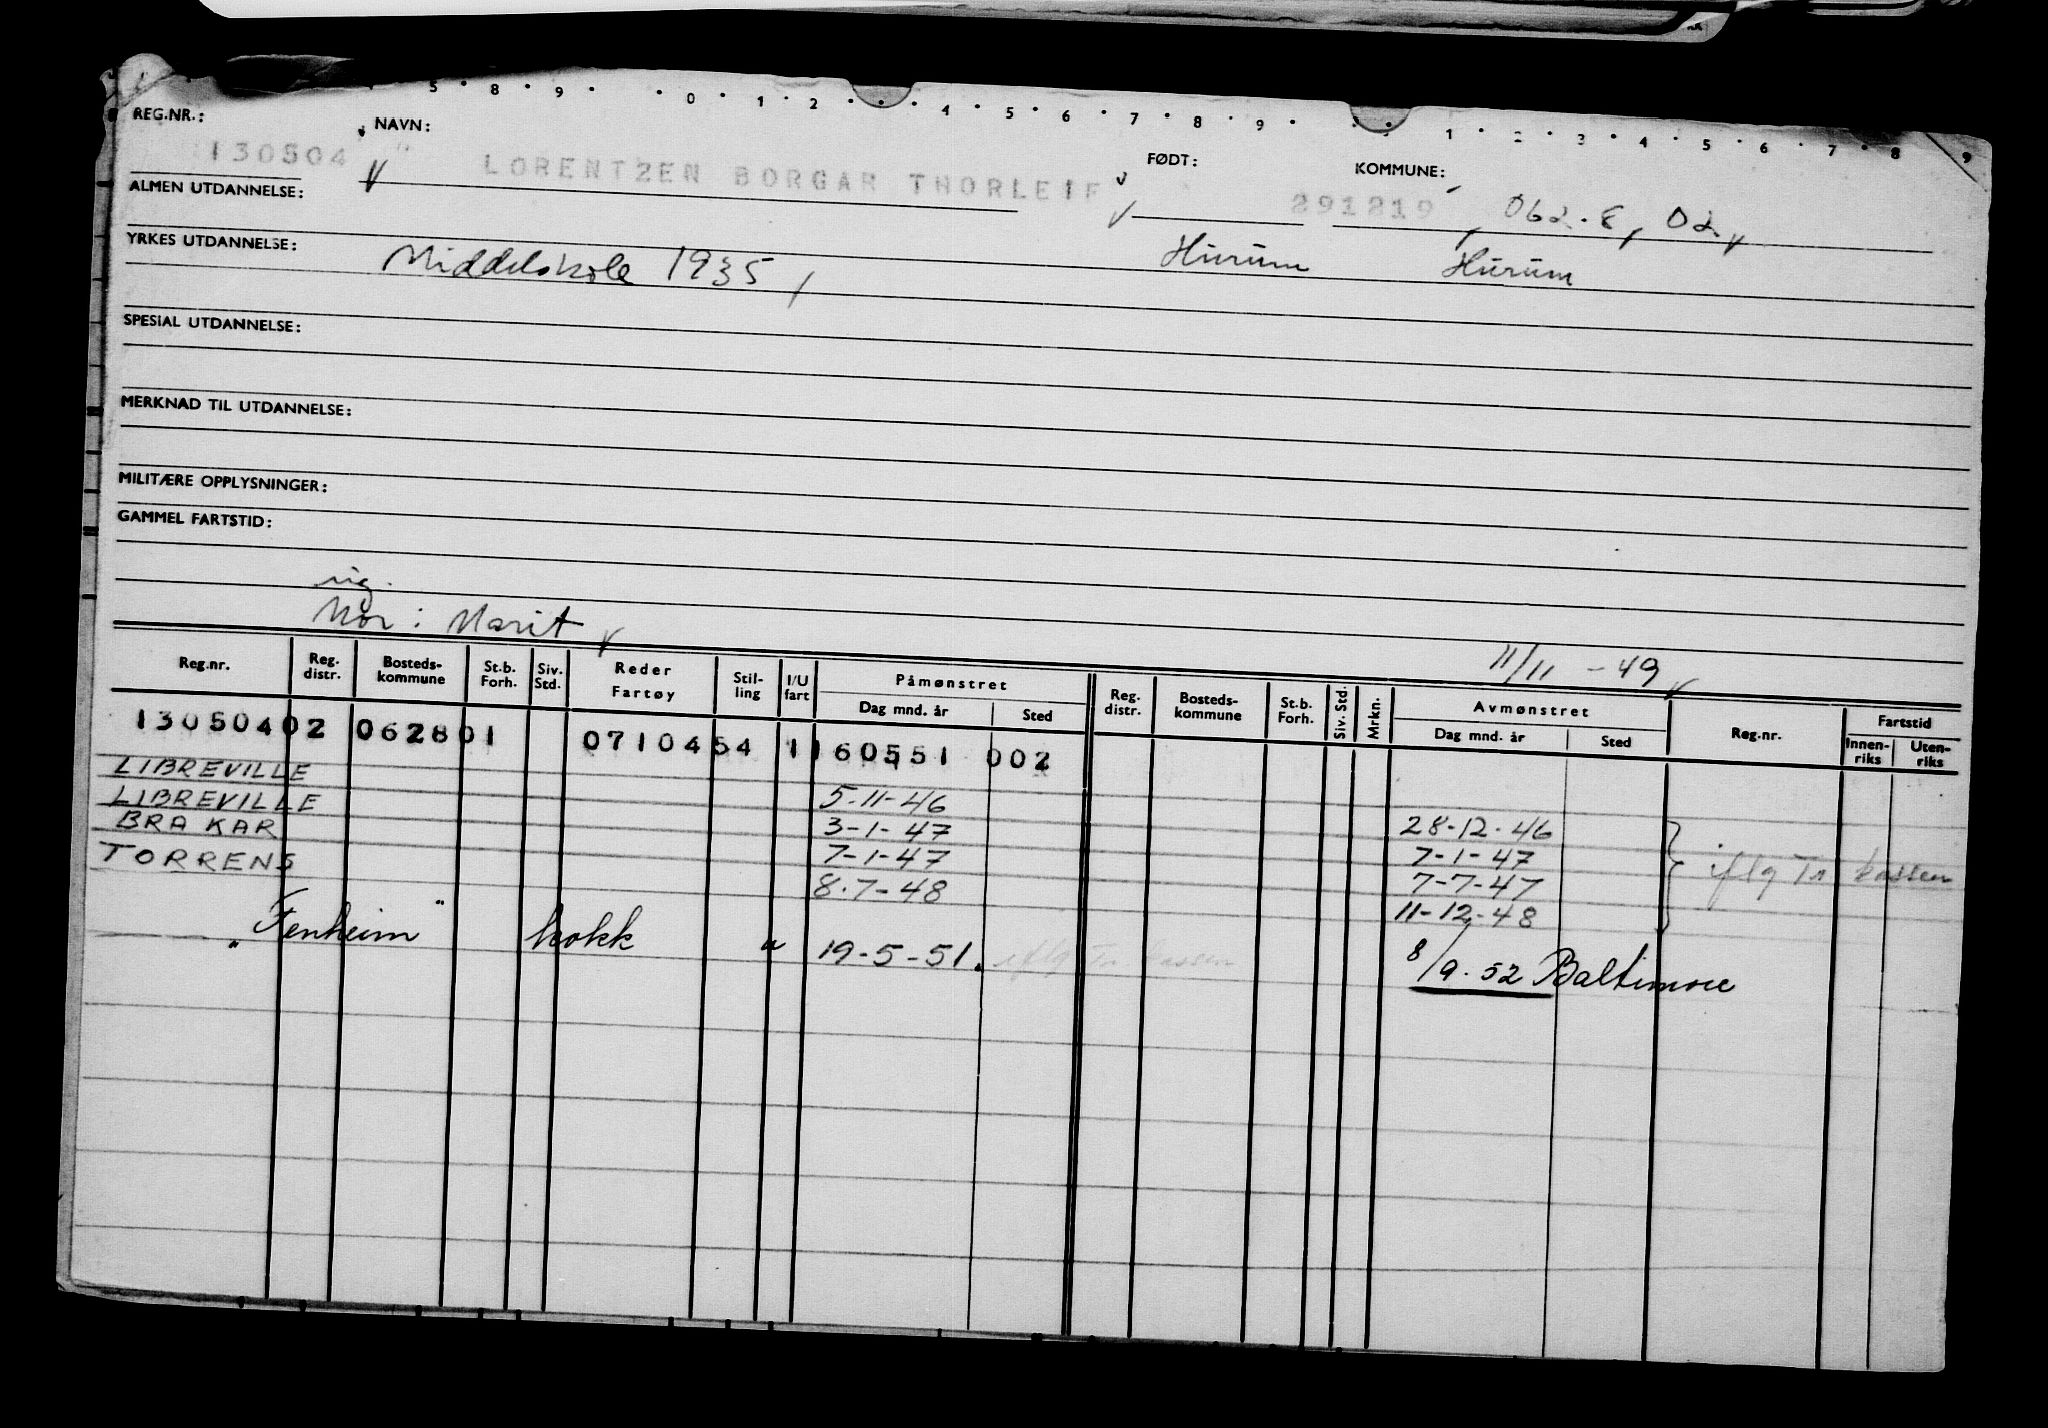 5 8 9 0 1 2 4 5 6 7 8 9 1 2 3 4 5 6 7 8 9
REG.NR.: NAVN: FØDT: KOMMUNE:
130504 LORENTZEN BORGAR THORLEIF 291219 062.8, 02.
ALMEN UTDANNELSE:
Middelskole 1935 Hurum Hurum
YRKES UTDANNELSE:
SPESIAL UTDANNELSE:
MERKNAD TIL UTDANNELSE:
MILITÆRE OPPLYSNINGER:
GAMMEL FARTSTID:
ug.
Mor: Marit 11/11 - 49
Reg.nr. Reg. distr. Bosteds-kommune St.b. Forh. Siv. Std. Reder Fartøy Stil-ling I/U fart Påmønstret Dag mnd. år Sted Reg. distr. Bosteds-kommune St.b. Forh. Siv. Std. Mrkn. Avmønstret Dag mnd. år Sted Reg.nr. Fartstid Innen-riks Uten-riks
13050402 062801 0710454 1160551 002
LIBREVILLE 5-11-46 28-12-46
LIBREVILLE 3-1-47 7-1-47
BRA KAR 7-1-47 7-7-47 iflg Tr kassen
TORRENS 8.7-48 11-12-48
" Fenheim " kokk " 19-5-51. iflg Tr. kassen 8/9.52 Baltimore